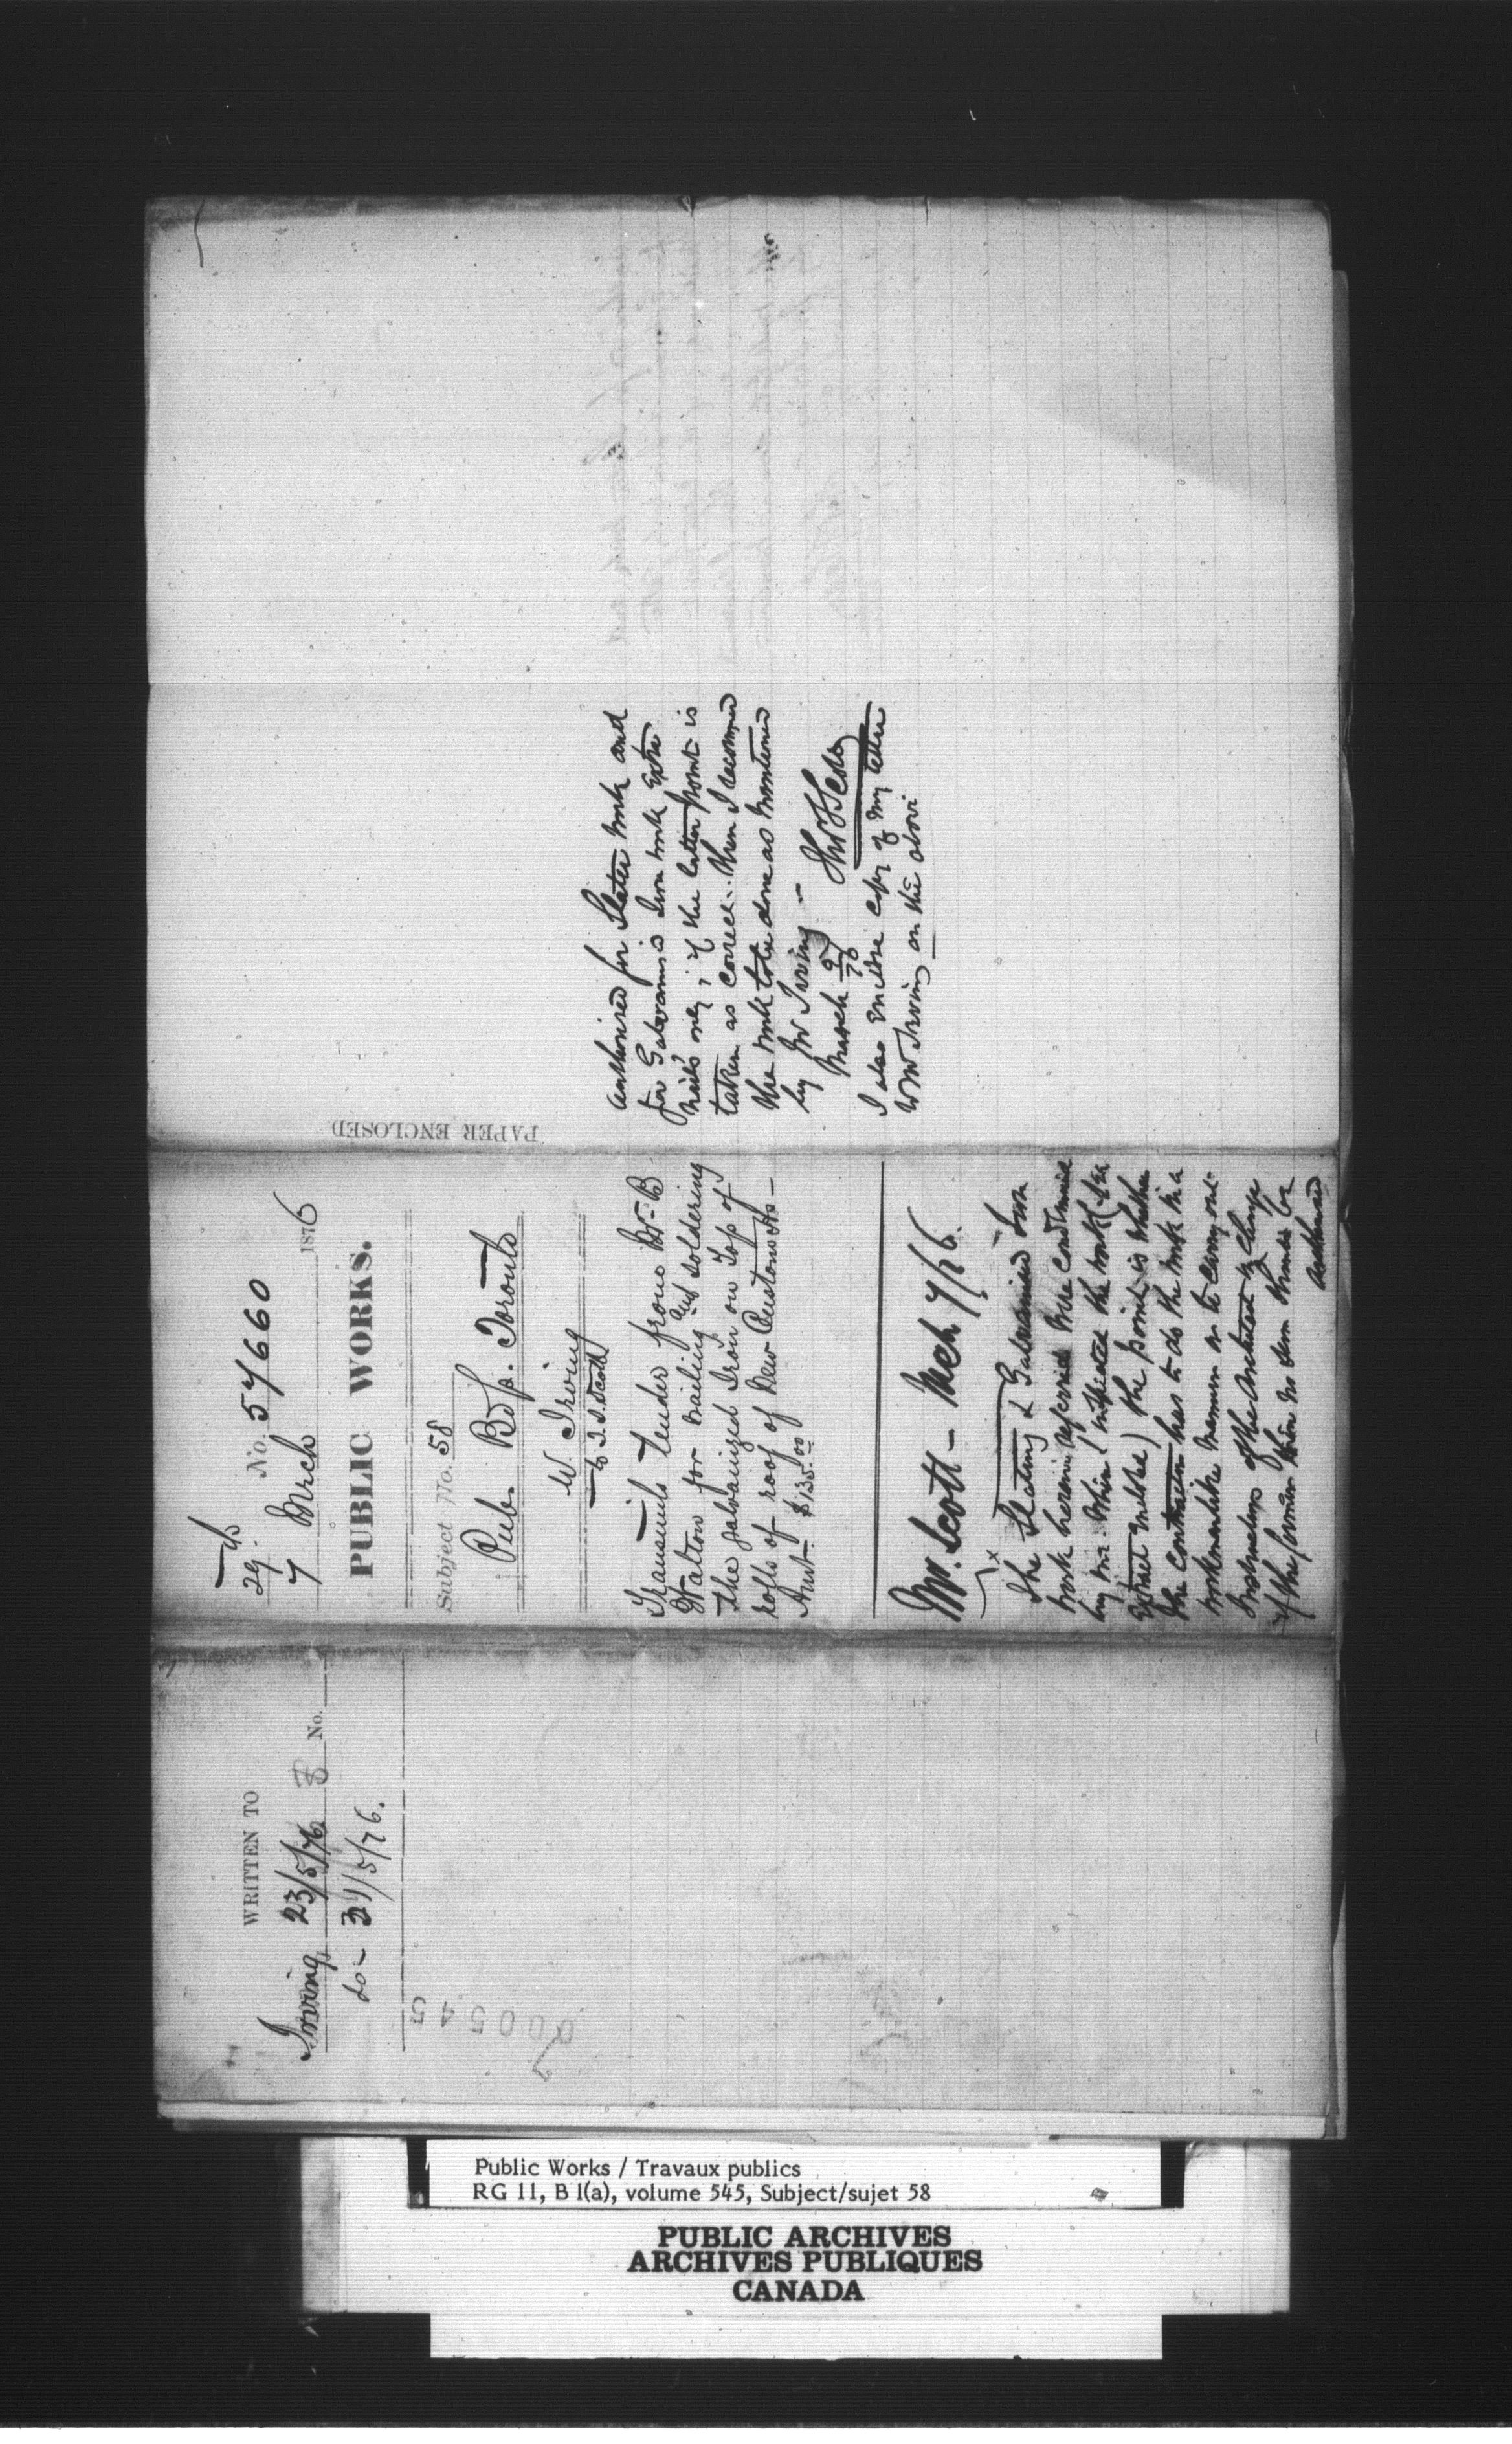 WRITTEN TO
Irving 23/5/76 No.
do - 31/5/76.
000545
29
No. 57660
7 March 1876
PUBLIC WORKS.
Subject No. 58
Pub. Bdgs. Toronto
W. Irving
to T.S. Scott
Transmits tender from Bt. B
Walton for nailing and soldering
the galvanized Iron on Top of
rolls of roof of New Customs Ho -
Amt. $135.00
Mr. Scott - Mch 7/76.
The Slating & Galvanised Iron
work herein referred were condemned
by me when (inspected the work (see
extract ) the point is whether
the contractor has to do the work in a
workmanlike manner or to carry out
instructions of the Architect in charge
if the former then no sum should be
authorised
PAPER ENCLOSED
authorised for Slaters work and
for Galvanised Iron work Extra
nails only; if the latter point is
taken as correct. then I recommend
the work to be done as mentioned
by Mr Irving -
March 9/76 Thos S Scott
I also enclose copy of my letter
to Mr Irving on the above
Public Works / Travaux publics
RG 11, B 1(a), volume 545, Subject/sujet 58
PUBLIC ARCHIVES
ARCHIVES PUBLIQUES
CANADA